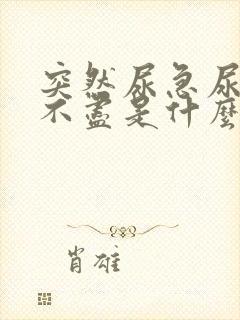 突然尿急尿
不盡是什麼
肖雄